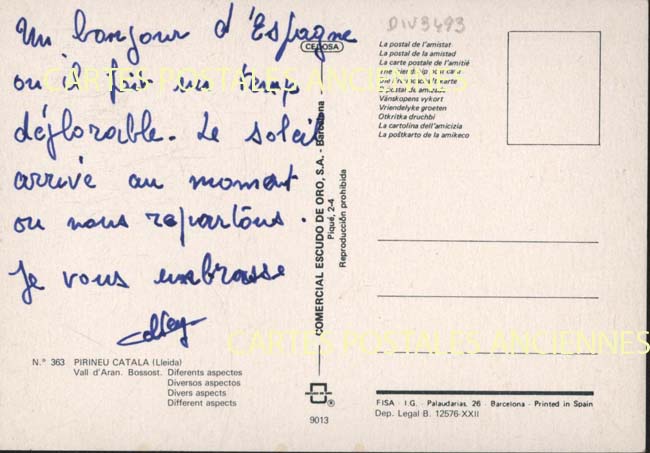 DIV3493
Un bonjour d'Espagne
ou il fait un temps
déplorable. Le soleil
arrive au moment
ou nous repartons.
Je vous embrasse
CEDOSA
COMERCIAL ESCUDO DE ORO, S.A. - Barcelona
Piqué, 2-4
Reproducción prohibida
La postal de l'amistat
La postal de la amistad
La carte postale de l'amitié
The friendship postcard
Die Freundschaftskarte
A postal de amizade
Vänskapens vykort
Vriendelyke groeten
Otkritka druchbi
La cartolina dell'amicizia
La poŝtkarto de la amikeco
CARTES POSTALES ANCIENNES
CARTES POSTALES ANCIENNES
N.º 363 PIRINEU CATALA (Lleida)
Vall d'Aran. Bossost. Diferents aspectes
Diversos aspectos
Divers aspects
Different aspects
9013
FISA - I.G. - Palaudarias, 26 - Barcelona - Printed in Spain
Dep. Legal B. 12576-XXII